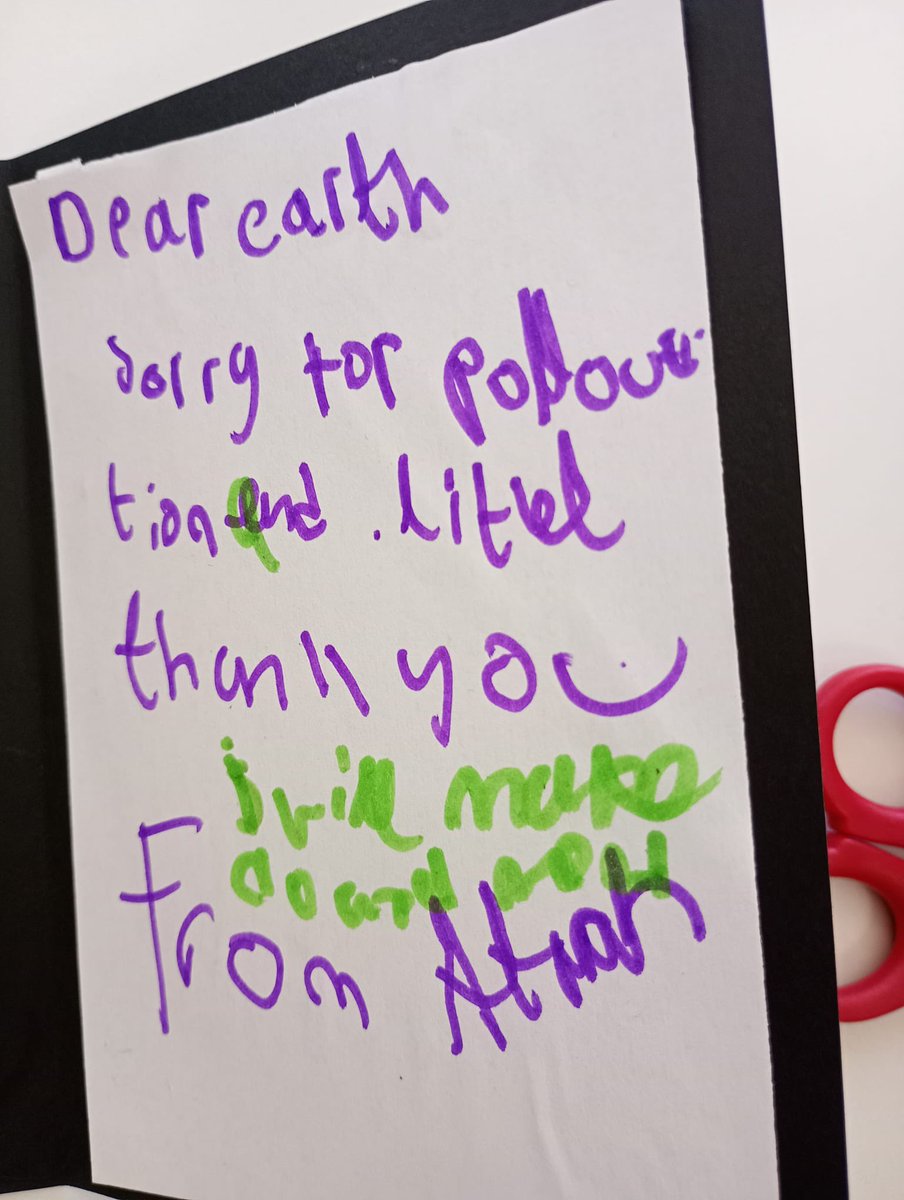 Dear earth
Sorry for pollou
tion and .littel
thank you
i will make
From